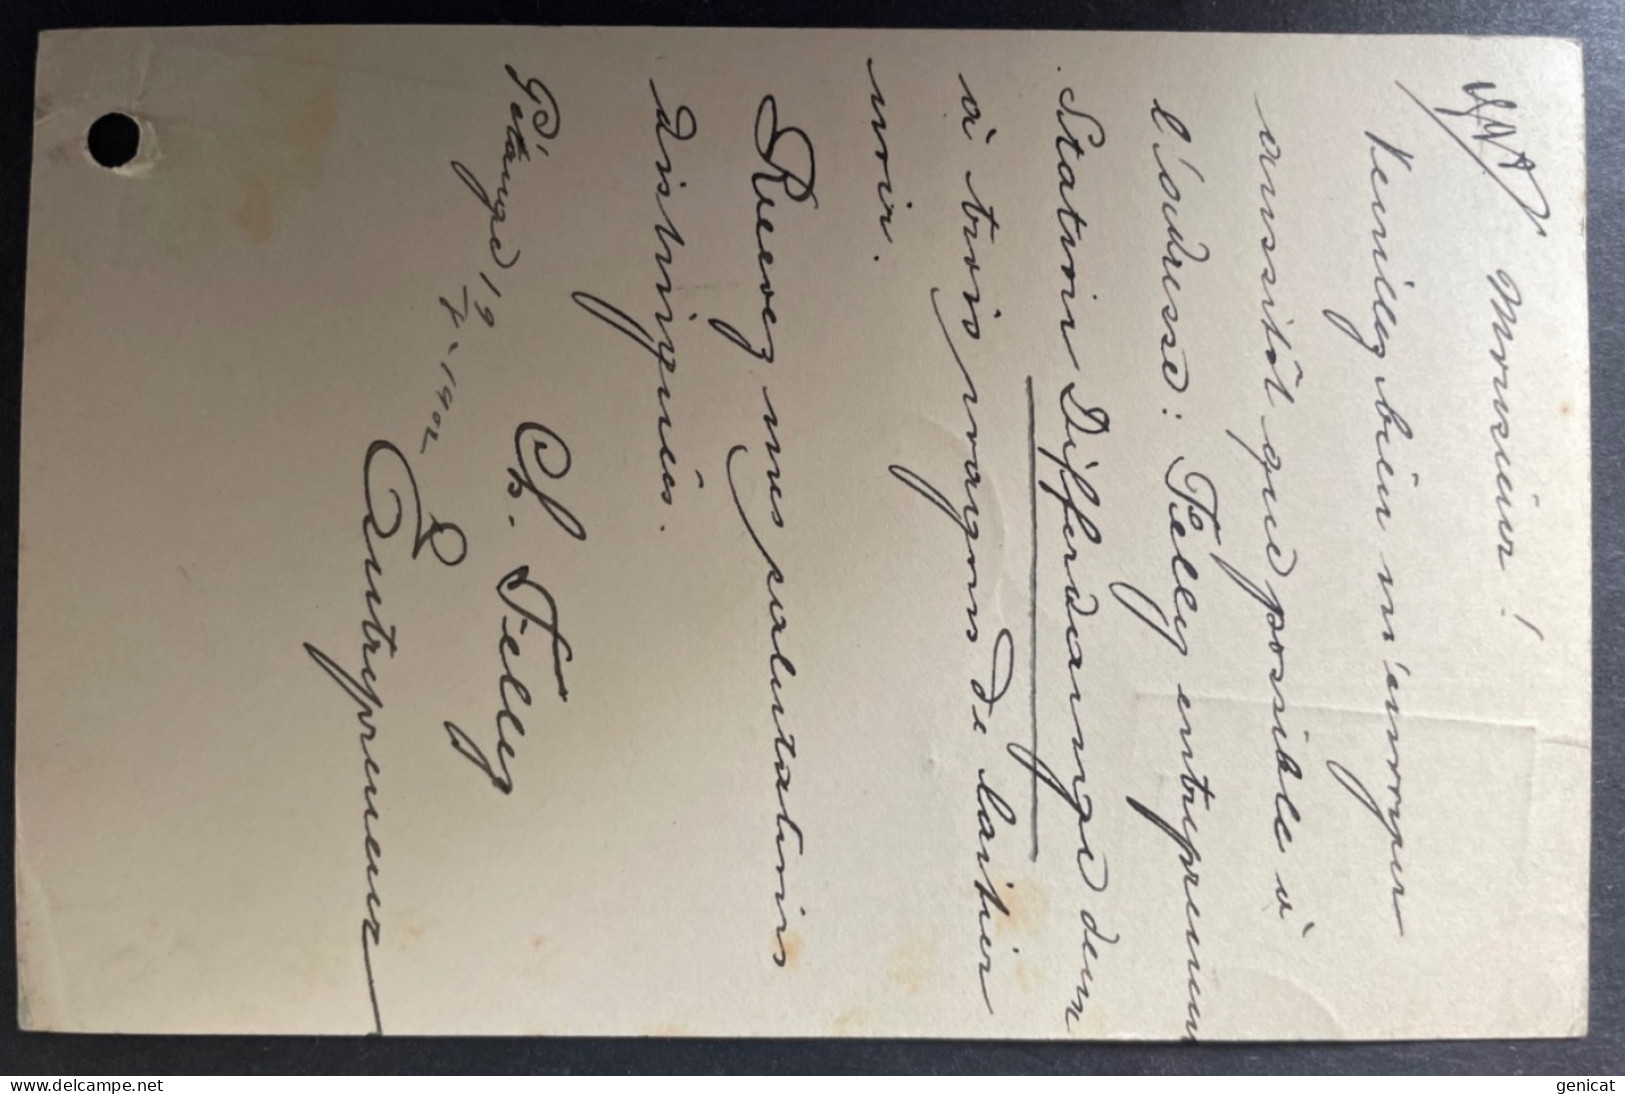 Monsieur!
Veuillez bien m'envoyer
aussitôt que possible à
l'adresse: Felleg entrepreneur
Station Differdange deux
à trois wagons de laitier
noir.
Recevez mes salutations
distinguées.
Pétange 19
1902
Ch. Felleg
Entrepreneur
delcampe.net
genicat